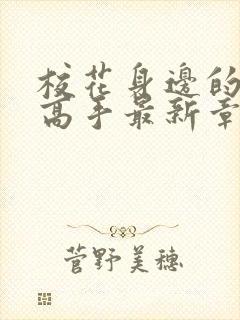 校花身邊的
高手最新章
菅野美穗